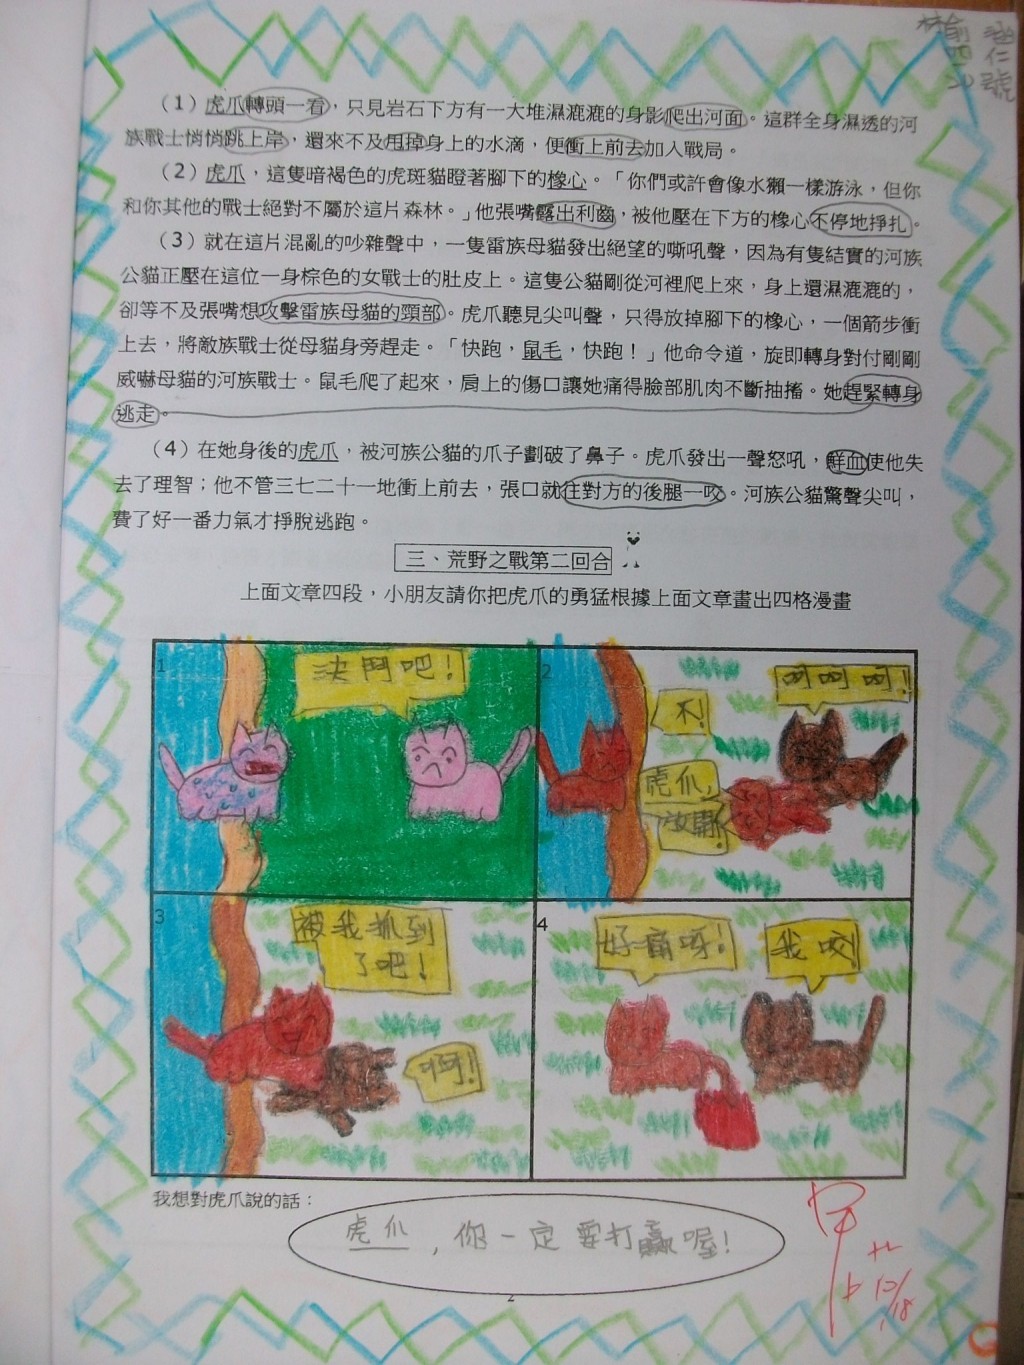 林俞涵
四仁
號
(1)虎爪轉頭一看，只見岩石下方有一大堆濕漉漉的身影爬出河面。這群全身濕透的河
族戰士悄悄跳上岸，還來不及甩掉身上的水滴，便衝上前去加入戰局。
(2)虎爪，這隻暗褐色的虎斑貓瞪著腳下的橡心。「你們或許會像水獺一樣游泳，但你
和你其他的戰士絕對不屬於這片森林。」他張嘴露出利齒，被他壓在下方的橡心不停地掙扎。
(3)就在這片混亂的吵雜聲中，一隻雷族母貓發出絕望的嘶吼聲，因為有隻結實的河族
公貓正壓在這位一身棕色的女戰士的肚皮上。這隻公貓剛從河裡爬上來，身上還濕漉漉的，
卻等不及張嘴想攻擊雷族母貓的頸部。虎爪聽見尖叫聲，只得放掉腳下的橡心，一個箭步衝
上去，將敵族戰士從母貓身旁趕走。「快跑，鼠毛，快跑！」他命令道，旋即轉身對付剛剛
威嚇母貓的河族戰士。鼠毛爬了起來，肩上的傷口讓她痛得臉部肌肉不斷抽搐。她趕緊轉身
逃走。
(4)在她身後的虎爪，被河族公貓的爪子劃破了鼻子。虎爪發出一聲怒吼，鮮血使他失
去了理智；他不管三七二十一地衝上前去，張口就往對方的後腿一咬。河族公貓驚聲尖叫，
費了好一番力氣才掙脫逃跑。
三、荒野之戰第二回合
上面文章四段，小朋友請你把虎爪的勇猛根據上面文章畫出四格漫畫
1
決鬥吧！
2
不！
呵呵呵！
虎爪，
放開！
3
被我抓到
了吧！
啊！
4
好痛呀！
我咬！
我想對虎爪說的話：
虎爪，你一定要打贏喔！
甲
12/18
2